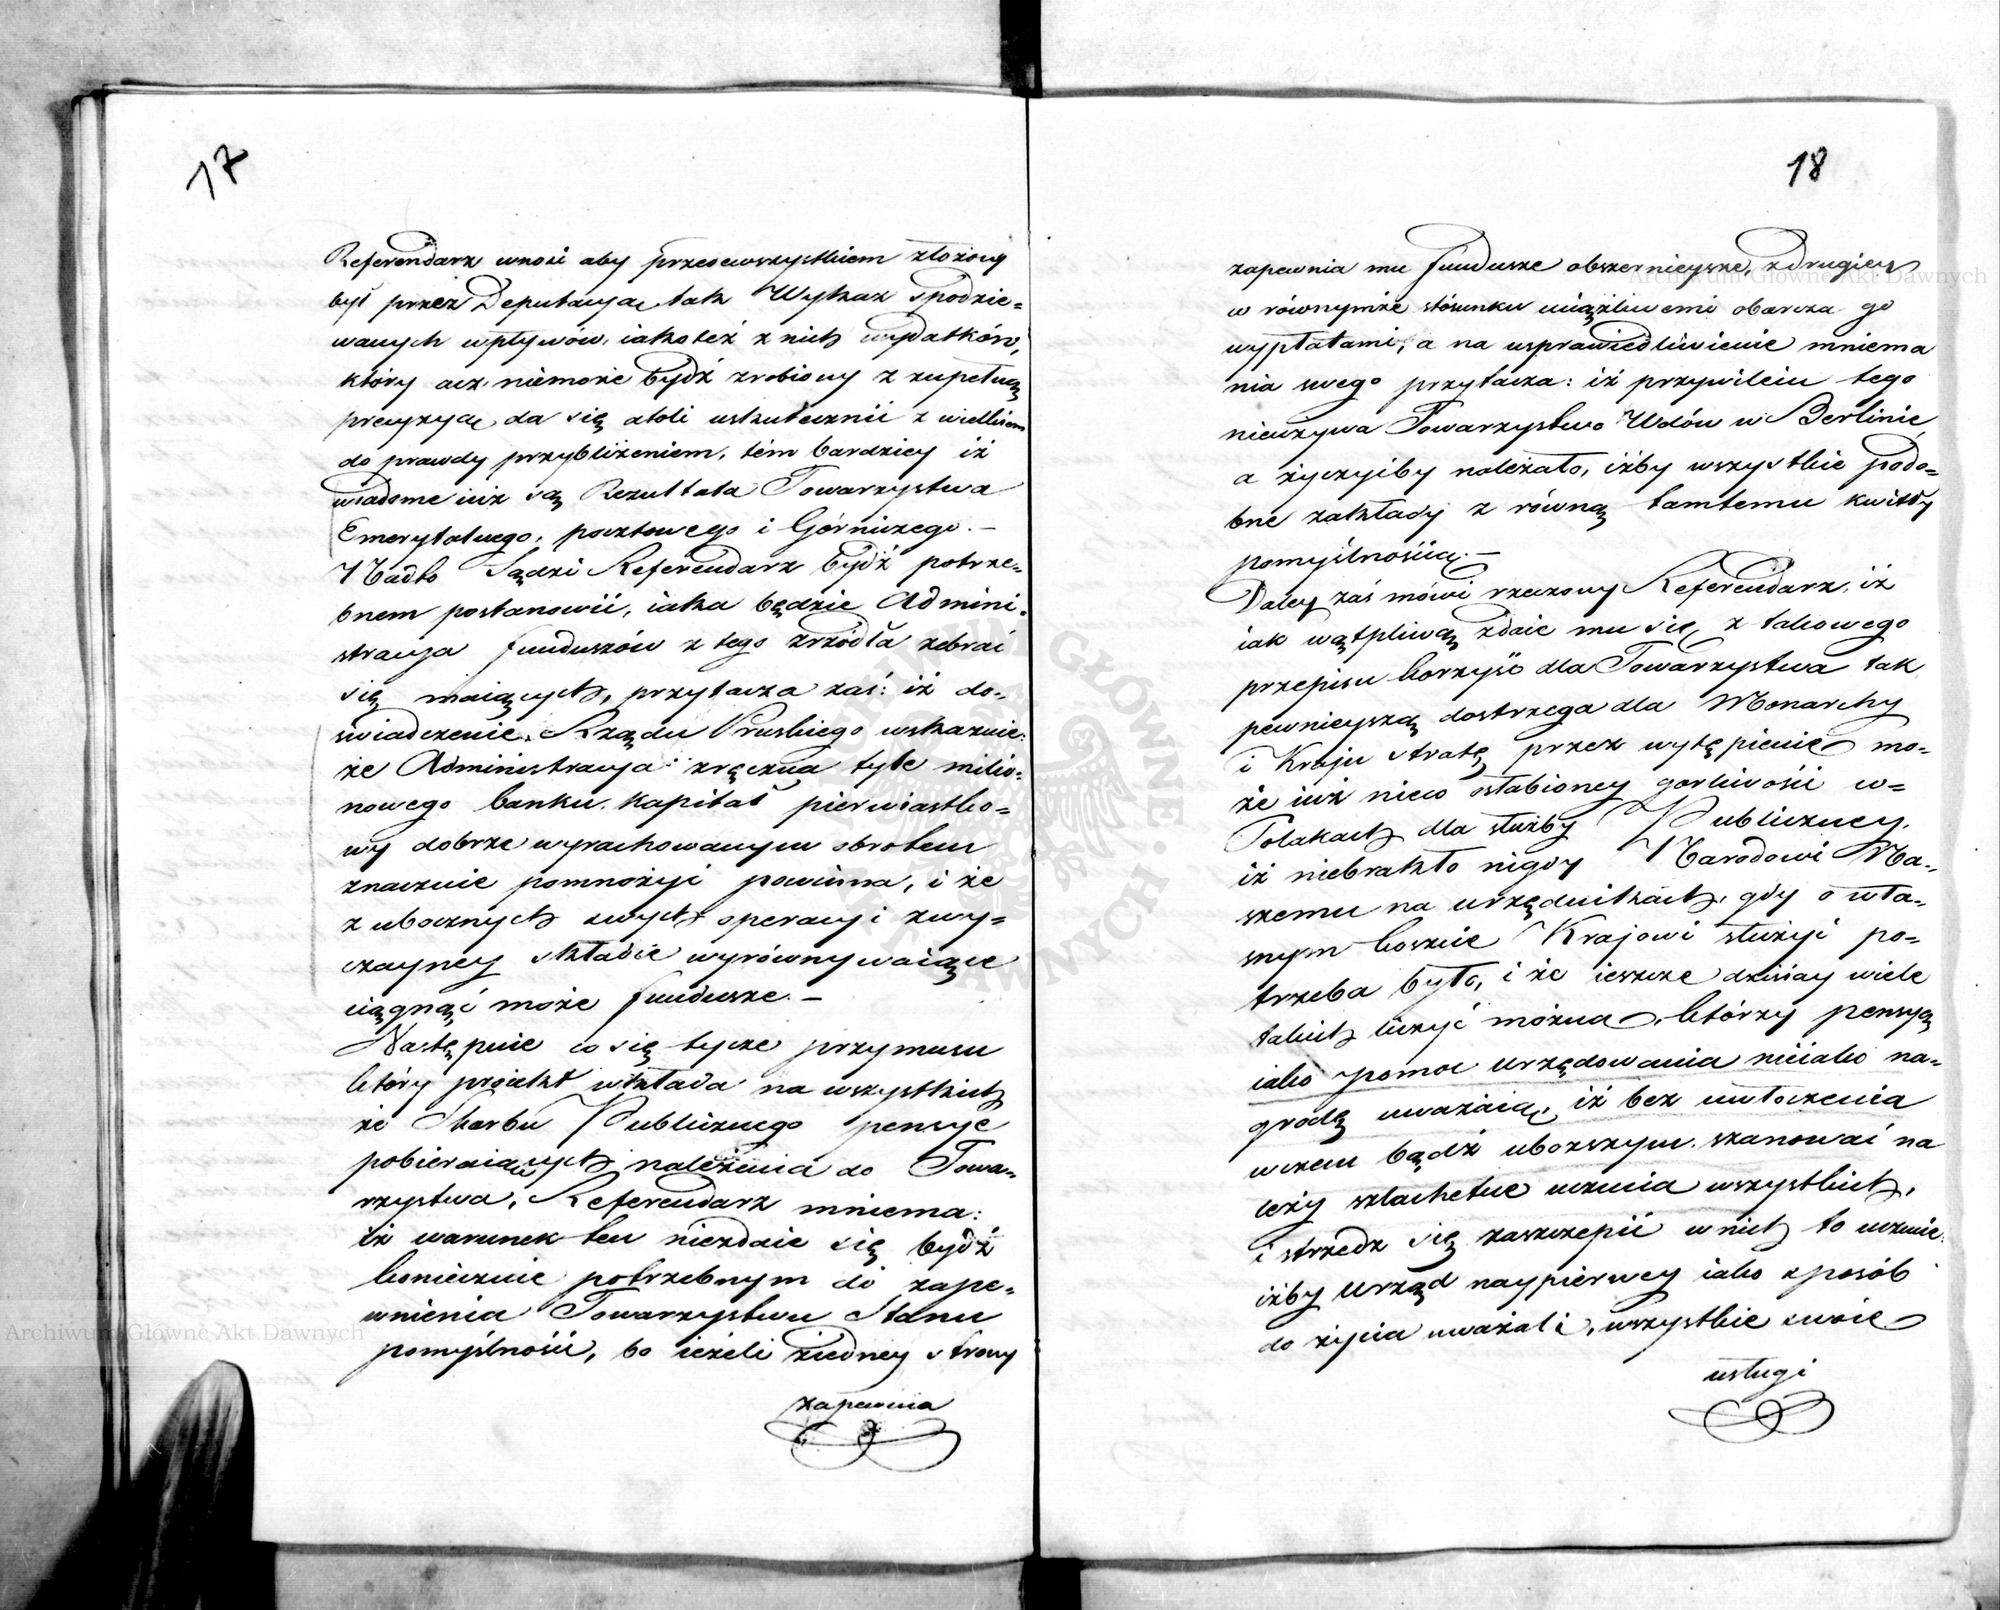 17
Referendarz wnosi aby przedewszystkiem złożony
był przez Deputacyą tak Wykaz spodzie=
wanych wpływów, iakoteż z nich wydatków,
który acz niemoże bydź zrobiony z zupełną
precyzyą, da się atoli uskutecznić z wielkiem
do prawdy przybliżeniem, tém bardziey iż
wiadome iuż są Rezultata Towarzystwa
Emerytalnego, pocztowego i Górniczego. —
Nadto Sądzi Referendarz bydź potrze=
bnem postanowić, iaka będzie Admini=
stracya funduszów z tego źrzódła zebrać
się maiących, przytacza zaś: iż do=
świadczenie Rządu Pruskiego wskazuie:
że Administracya zręczna tyle milio=
nowego banku, kapitał pierwiastko=
wy dobrze wyrachowanym obrotem
znacznie pomnożyć powinna, i że
z ubocznych swych operacyi zwy=
czayney składce wyrównywaiące
ciągnąć może fundusze. —
Następnie co się tycze przymusu
który proiekt wkłada na wszystkich
ze Skarbu Publicznego pensye
pobieraiących należenia do Towa=
rzystwa, Referendarz mniema:
iż warunek ten niezdaie się bydź
koniecznie potrzebnym do zape=
wnienia Towarzystwu Stanu
pomyślności, bo ieżeli ziedney strony
zapewnia
18
zapewnia mu fundusze obszernieysze, zdrugiey
w równymże stósunku uciążliwemi obarcza go
wypłatami, a na usprawiedliwienie mniema
nia swego przytacza: iż przywileiu tego
nieużywa Towarzystwo Wdów w Berlinie,
a życzyćby należało, iżby wszystkie podo=
bne zakłady z równą tamtemu kwitły
pomyślnością. —
Daley zaś mówi rzeczony Referendarz, iż
iak wątpliwą zdaie mu się, z takowego
przepisu korzyść dla Towarzystwa tak
pewnieyszą dostrzega dla Monarchy
i Kraju stratę przez wytępienie mo=
że iuż nieco osłabioney gorliwości w=
Polakach dla służby Publiczney,
iż niebrakło nigdy Narodowi Na=
szemu na urzędnikach, gdy o wła=
snym koszcie Krajowi służyć po=
trzeba było, i że ieszcze dzisiay wiele
takich liczyć można, którzy pensyą
iako pomoc urzędowania nieiako na=
grodę uważaią, iż bez uwłoczenia
wczem bądź uboższym, szanować na
leży szlachetne uczucia wszystkich,
i strzedz się zaszczepić w nich to uczucie
iżby urząd naypierwey iako sposób
do życia uważali, wszystkie swoie
usługi
Archiwum Główne Akt Dawnych
Archiwum Główne Akt Dawnych
ARCHIWUM GŁÓWNE AKT DAWNYCH